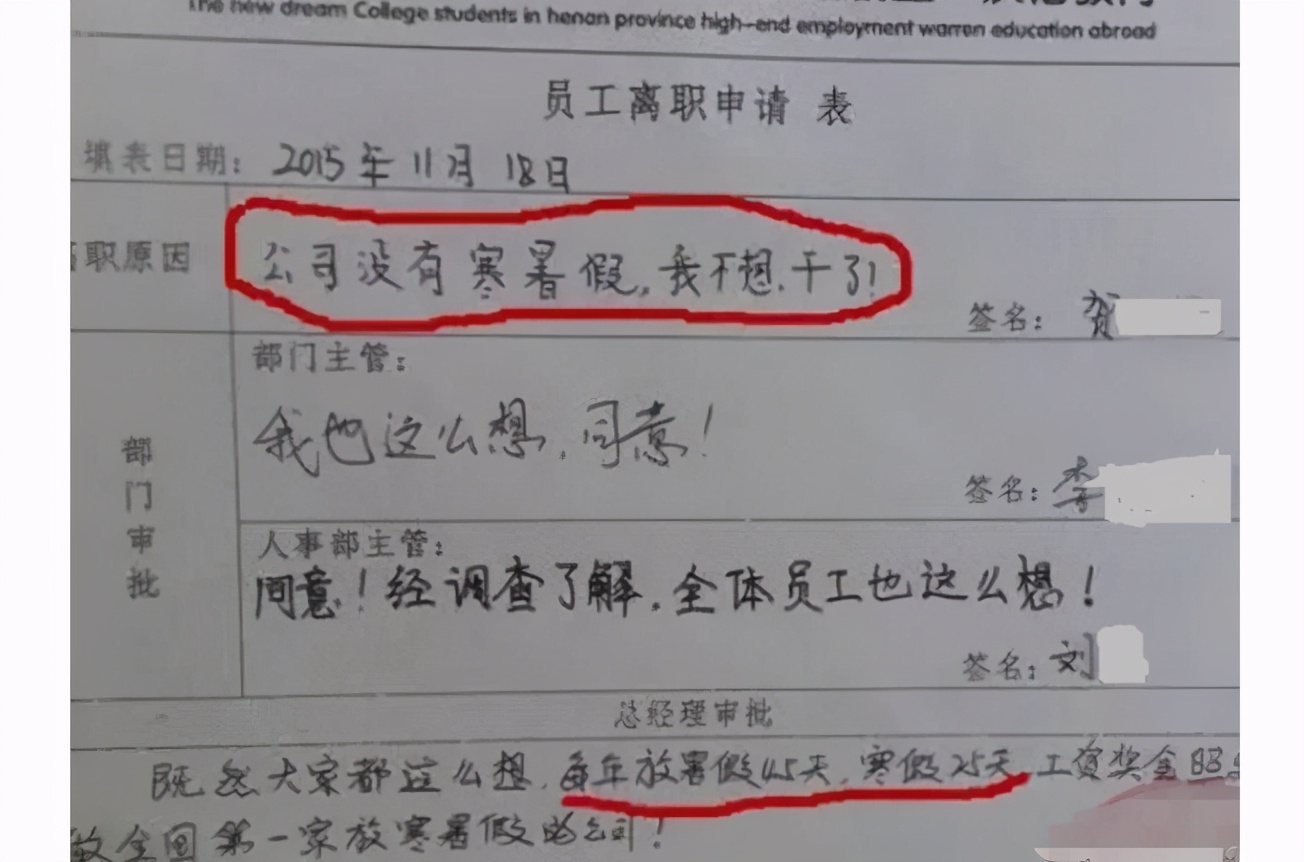 The new dream College students in henan province high-end employment warren education abroad
员工离职申请 表
填表日期: 2015年11月18日
职原因
公司没有寒暑假,我不想干了!
签名: 贺
部门审批
部门主管:
我也这么想,同意!
签名: 李
人事部主管:
同意!经调查了解,全体员工也这么想!
签名: 刘
总经理审批
既然大家都这么想,每年放暑假45天,寒假25天 工资奖金照
做全国第一家放寒暑假的公司!